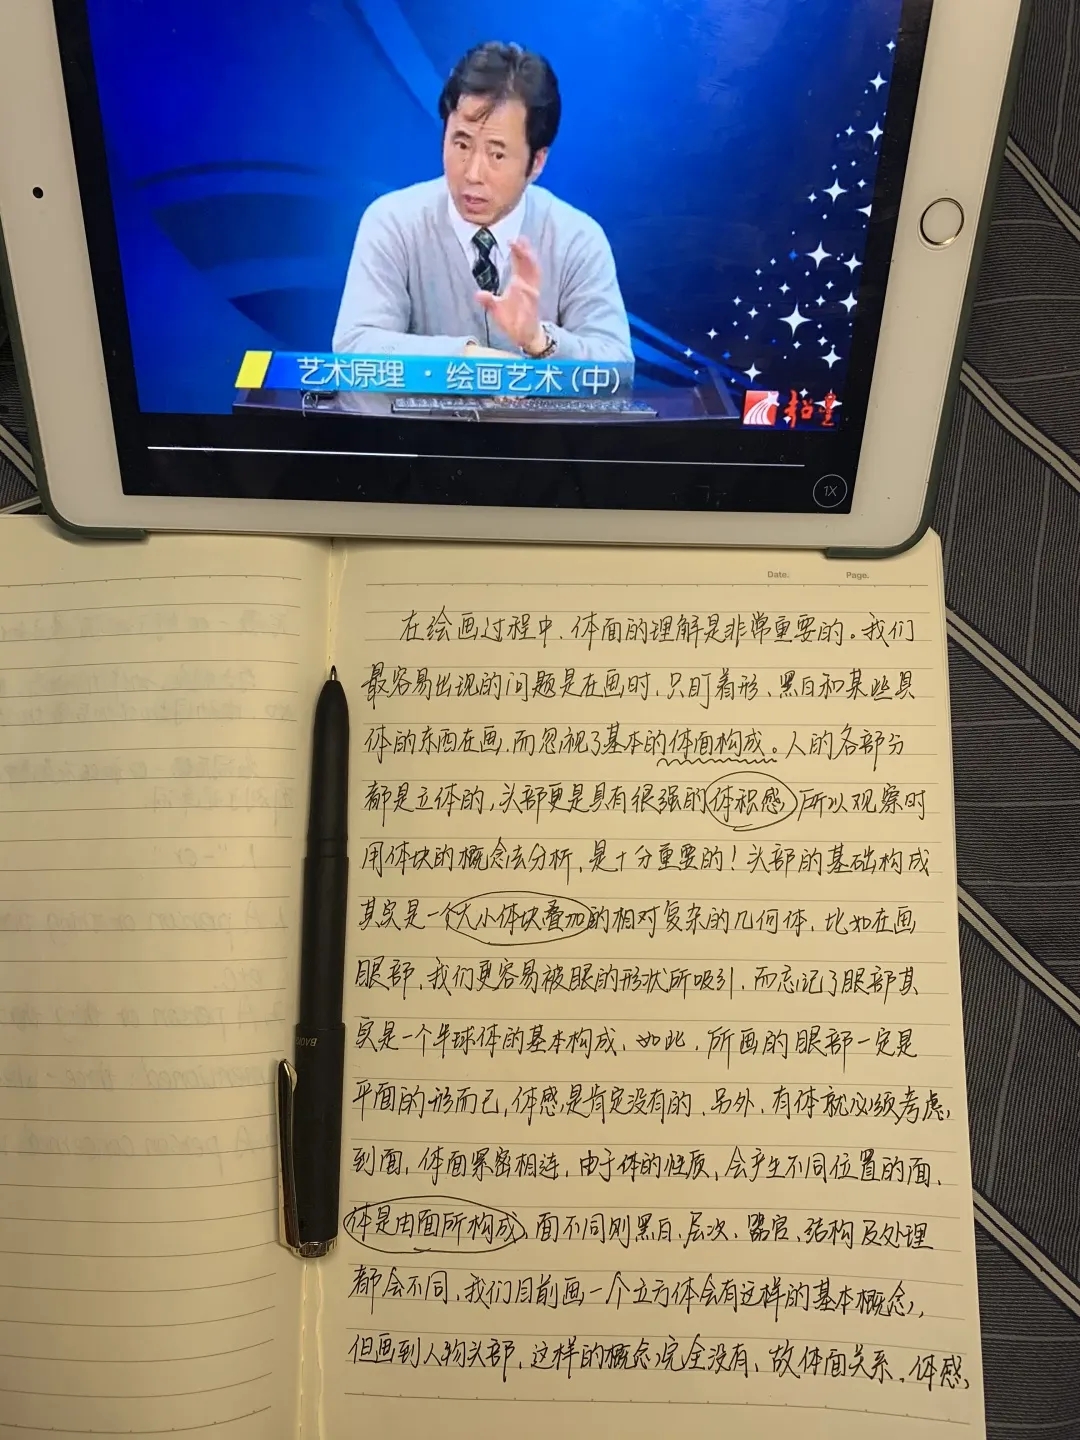 艺术原理·绘画艺术(中)
超星
1X
Date:
Page.
在绘画过程中、体面的理解是非常重要的。我们
最容易出现的问题是在画时、只盯着形、黑白和某些具
体的东西在画、而忽视了基本的体面构成。人的各部分
都是立体的、头部更是具有很强的体积感、所以观察时
用体块的概念去分析、是十分重要的！头部的基础构成
其实是一个大小体块叠加的相对复杂的几何体、比如在画
眼部、我们更容易被眼的形状所吸引、而忘记了眼部其
实是一个半球体的基本构成、如此、所画的眼部一定是
平面的形而已、体感是肯定没有的、另外、有体就必须考虑
到面、体面紧密相连、由于体的性质、会产生不同位置的面、
体是由面所构成、面不同则黑白、层次、器官、结构及处理
都会不同、我们目前画一个立方体会有这样的基本概念、
但画到人物头部、这样的概念完全没有、故体面关系、体感、